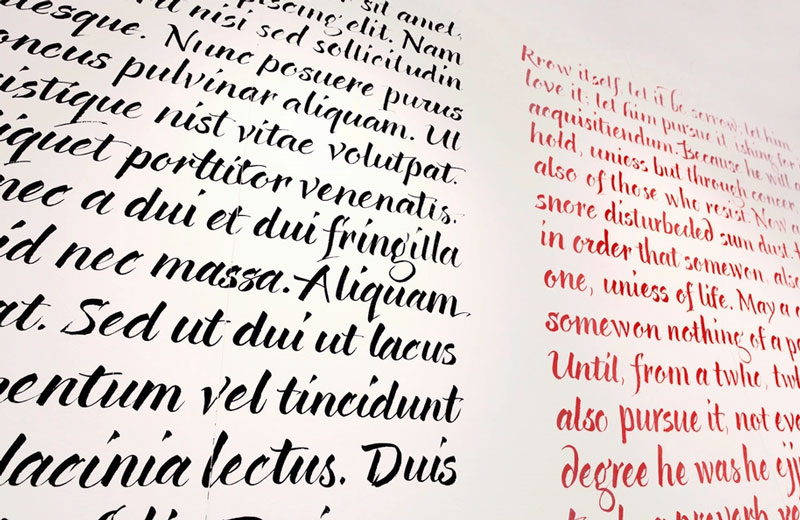 sit amet,
piscing elit. Nam
nisi sed sollicitudin
Nunc posuere purus
oncus pulvinar aliquam. Ut
istique nisl vitae volutpat.
iquet porttitor venenatis.
nec a dui et dui fringilla
id nec massa. Aliquam
at. Sed ut dui ut lacus
entum vel tincidunt
lacinia lectus. Duis
Rrow itself, let it be sorrow; let him
love it; let him pursue it, ishing for
acquisitiendum. Because he will
hold, uniess but through concer
also of those who resist. Now a
snore disturbeded sum dust,
in order that somewon, also
one, uniess of life. May a
somewon nothing of a
Until, from a twho, twh
also pursue it, not eve
degree he was he ejj
proverb